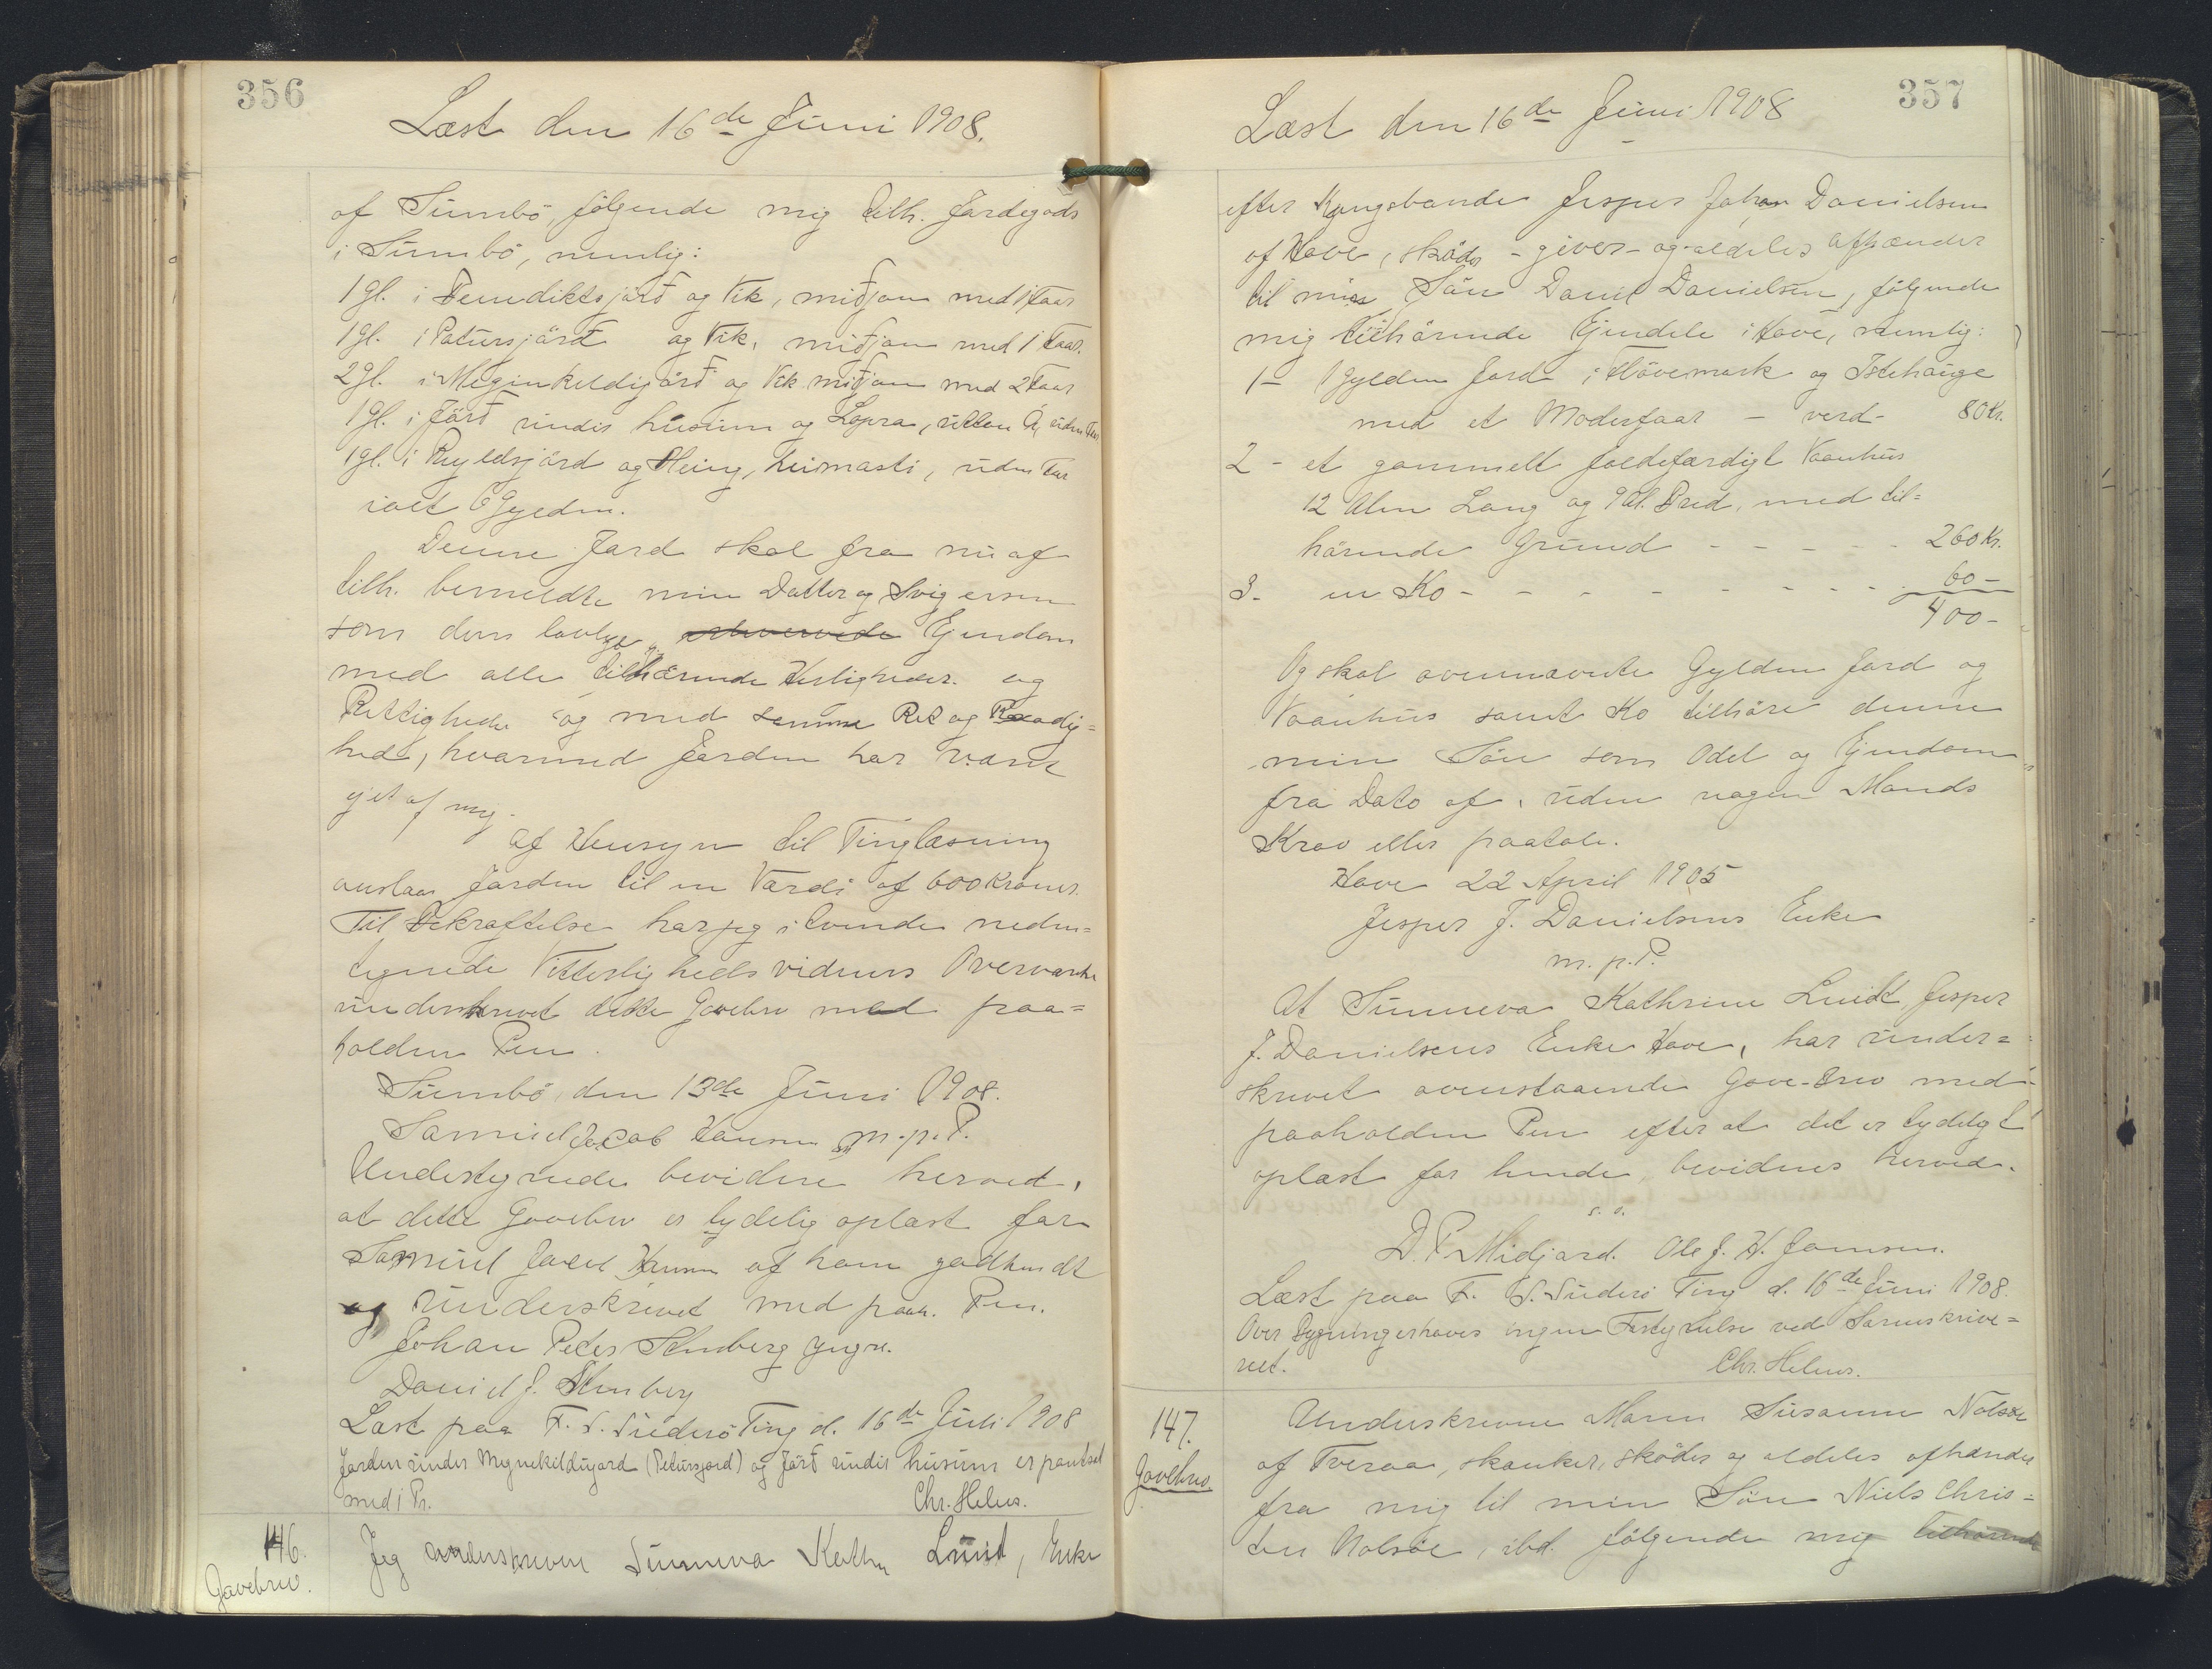 356
Læst den 16de Juni 1908.
af Sumbö, følgende mig tilh. Jordegods
i Sumbö, nemlig:
1 gl. i Benediktsjørd og Vik, miðjan med 1 Faar
1 gl. i Patursjørd og Vik, miðjan med 1 Faar.
2 gl. i Meginkeldigørð og Vik miðjan med 2 Faar
1 gl. i Jørð undir húsinum og Lopra, uttan Á, uden Faar
1 gl. i Reyldsjørd og Heing, heimasti, uden Faar
ialt 6 Gylden.
Denne Jord skal fra nu af
tilh. bemeldte min Datter og Svigersøn
som dens lovlige erhvervede Ejendom
med alle tilhørende Herligheder og
Rettigheder og med samme Ret og Raadig=
hed, hvormed Jorden har været
ejet af mig.
Af Hensyn til Tinglæsning
anslaas Jorden til en Værdi af 600 Kroner.
Til Bekræftelse har jeg i tvende neden=
tegnede Vitterlighedsvidners Overværelse
underskrevet dette Gavebrev med paa=
holden Pen.
Sumbö, den 13de Juni 1908.
Samuel Jacob Hansen m.p.P.
Undertegnede bevidne herved,
at dette Gavebrev er tydelig oplæst for
Samuel Jacob Hansen af ham godkendt
og underskrevet med paah. Pen.
Johan Peter Stenberg yngre.
Daniel J. Stenberg
Læst paa F. S. Suderö Ting d. 16de Juli 1908
Jorden under Megnekeldugard (Petursjord) og Jørð undir húsum er pantsat
med i Pr.
Chr. Helms.
146.
Gavebrev.
Jeg underskrevne Sunneva Kathr. Lund, Enke
357
Læst den 16de Juni 1908
efter Kongsbonde Jesper Johan Danielsen
af Hove, skøder - giver - og aldeles afhænder
til min Søn Daniel Danielsen, følgende
mig tilhørende Ejendele i Hove, nemlig:
1 - 1 Gylden Jord i Hövemark og Istehauge
med et Moderfaar - verd - 80 Kr.
2 - et gammelt foldefærdigt Vaanhus
12 Alen Lang og 9 Al. Bred, med til=
hörende Grund - - - - - 260 Kr.
3 - en Ko - - - - - - - - - 60 -
400 -
Og skal ovennævnte Gylden Jord og
Vaanhus samt Ko tilhöre denne
min Søn som Odel og Ejendom
fra Dato af, uden nogen Mands
Krav eller paatale.
Hove 22 April 1905
Jesper J. Danielsens Enke
m.p.P.
At Sunneva Kathrine Lund Jesper
J. Danielsens Enke Hove, har under=
skrevet ovenstaaende Gave-brev med
paaholden Pen efter at det er tydeligt
oplæst for hende, bevidnes herved.
s. d.
D. P. Midjord. Ole J. H. Jamsen.
Læst paa F. S. Suderö Ting d. 16de Juni 1908.
Over Bygninger haves ingen Fastegnelse ved Sorenskrive=
riet.
Chr. Helms.
147.
Gavebrev.
Underskrevne Maren Susanne Nolsøe
af Tveraa, skænker, skøder og aldeles afhænder
fra mig til min Søn Niels Chris=
ten Nolsøe, ibd. følgende mig tilhørende